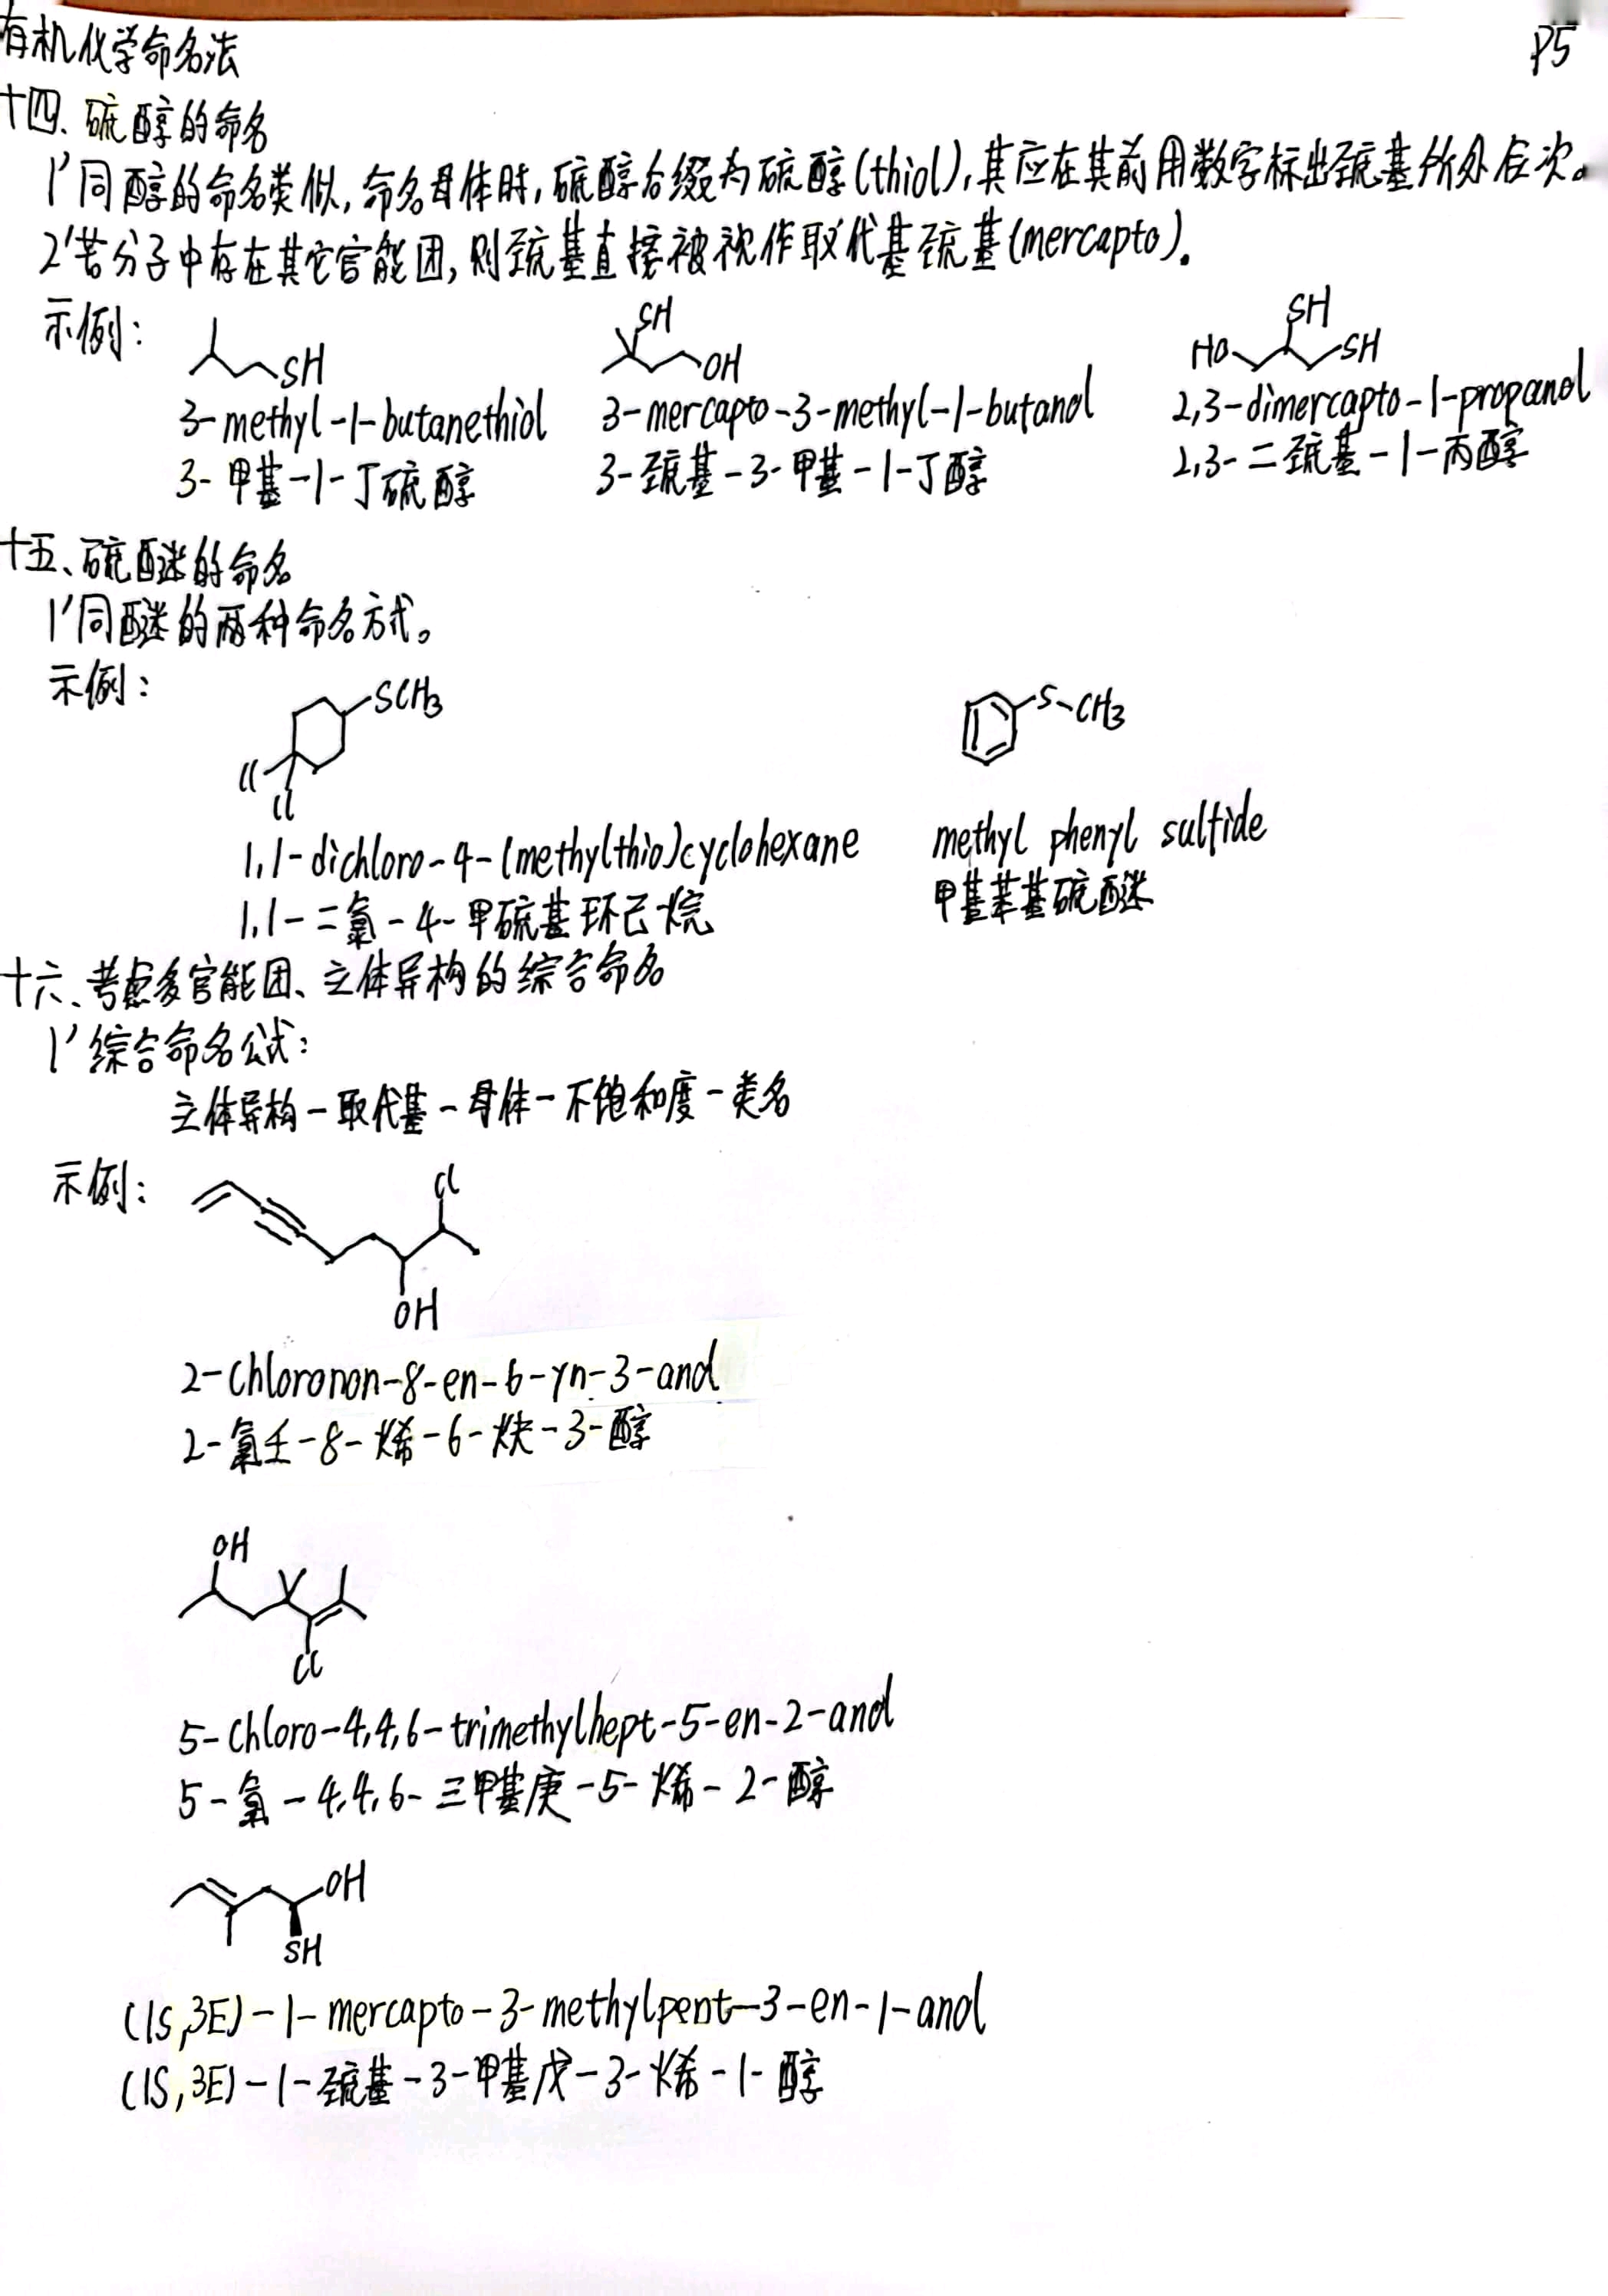 有机化学命名法
P5
十四、硫醇的命名
1' 同醇的命名类似,命名母体时,硫醇后缀为硫醇(thiol),其应在其前用数字标出巯基所处位次。
2' 若分子中存在其它官能团,则巯基直接被视作取代基巯基(mercapto)。
示例:
SH
SH
SH
OH
HO
SH
3-methyl-1-butanethiol
3-mercapto-3-methyl-1-butanol
2,3-dimercapto-1-propanol
3-甲基-1-丁硫醇
3-巯基-3-甲基-1-丁醇
2,3-二巯基-1-丙醇
十五、硫醚的命名
1' 同醚的两种命名方式。
示例:
SCH3
S-CH3
Cl
Cl
1,1-dichloro-4-(methylthio)cyclohexane
methyl phenyl sulfide
1,1-二氯-4-甲硫基环己烷
甲基苯基硫醚
十六、考虑多官能团、立体异构的综合命名
1' 综合命名公式:
立体异构-取代基-母体-不饱和度-类名
示例:
Cl
OH
2-Chloronon-8-en-6-yn-3-anol
2-氯壬-8-烯-6-炔-3-醇
OH
Cl
5-Chloro-4,4,6-trimethylhept-5-en-2-anol
5-氯-4,4,6-三甲基庚-5-烯-2-醇
OH
SH
(1S,3E)-1-mercapto-3-methylpent-3-en-1-anol
(1S,3E)-1-巯基-3-甲基戊-3-烯-1-醇